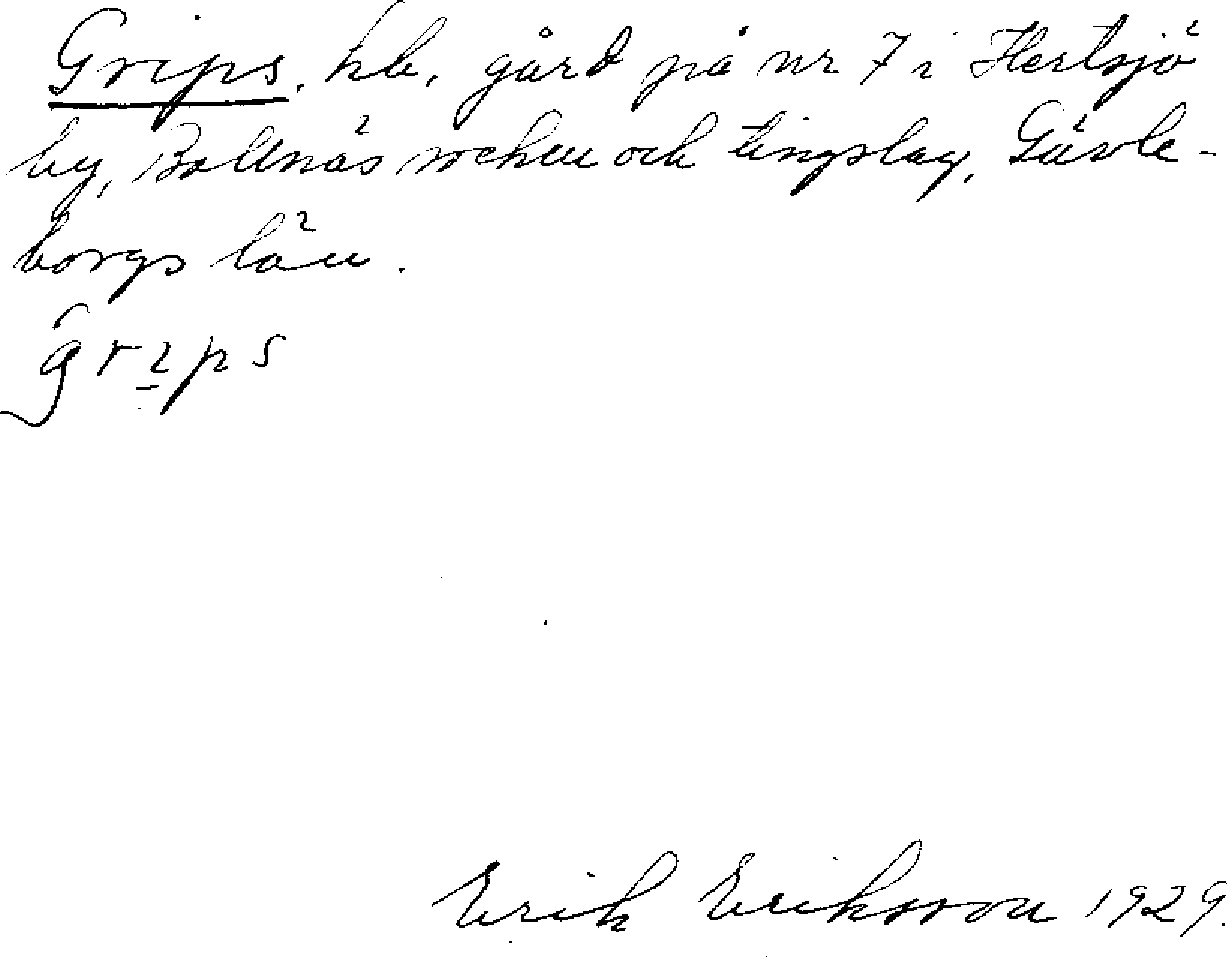 Grips. hb. gård på nr 7 i Hertsjö
by, Bollnäs socken och tingslag, Gävle-
borgs län.
grips
Erik Eriksson 1929.